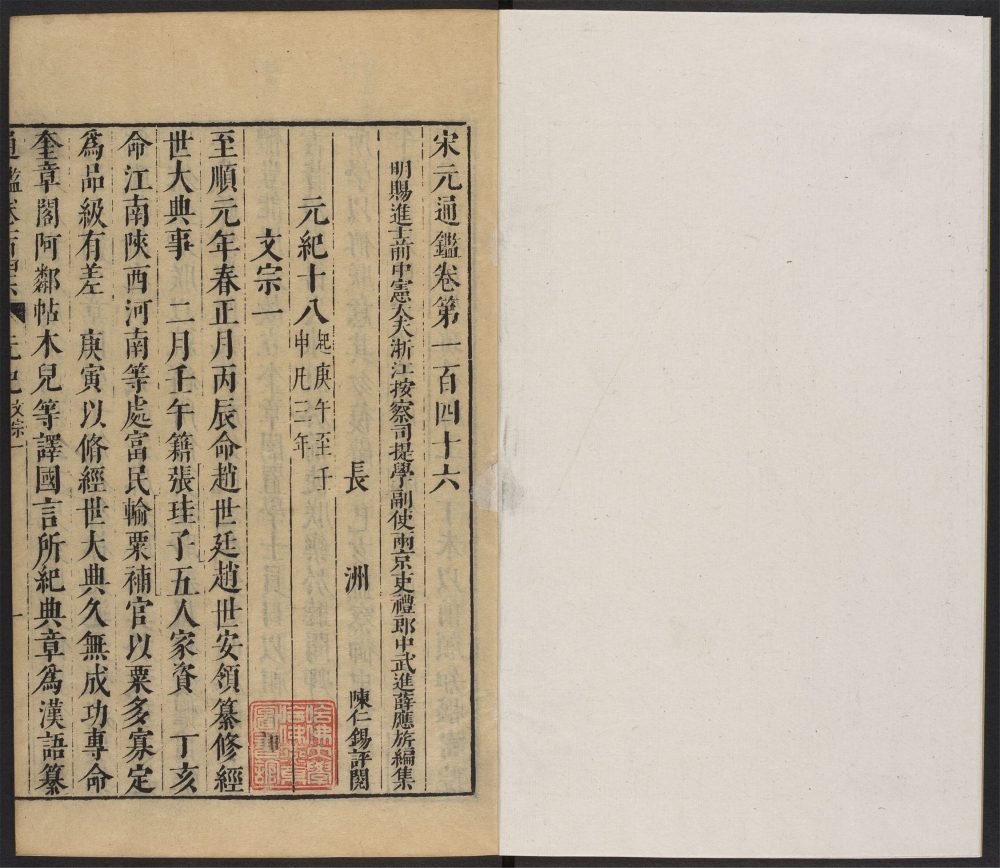 宋元通鑑卷第一百四十六
明賜進士前中憲大夫浙江按察司提學副使兩京吏禮郎中武進薛應旂編集
長洲 陳仁錫評閱
元紀十八 起庚午至壬申凡三年
文宗一
至順元年春正月丙辰命趙世廷趙世安領纂修經
世大典事 二月壬午籍張珪子五人家資 丁亥
命江南陝西河南等處富民輸粟補官以粟多寡定
為品級有差 庚寅以脩經世大典久無成功專命
奎章閣阿鄰帖木兒等譯國言所紀典章為漢語纂
通鑑卷一百四六 元紀 文宗一 一
哈佛大學哈佛燕京圖書館印